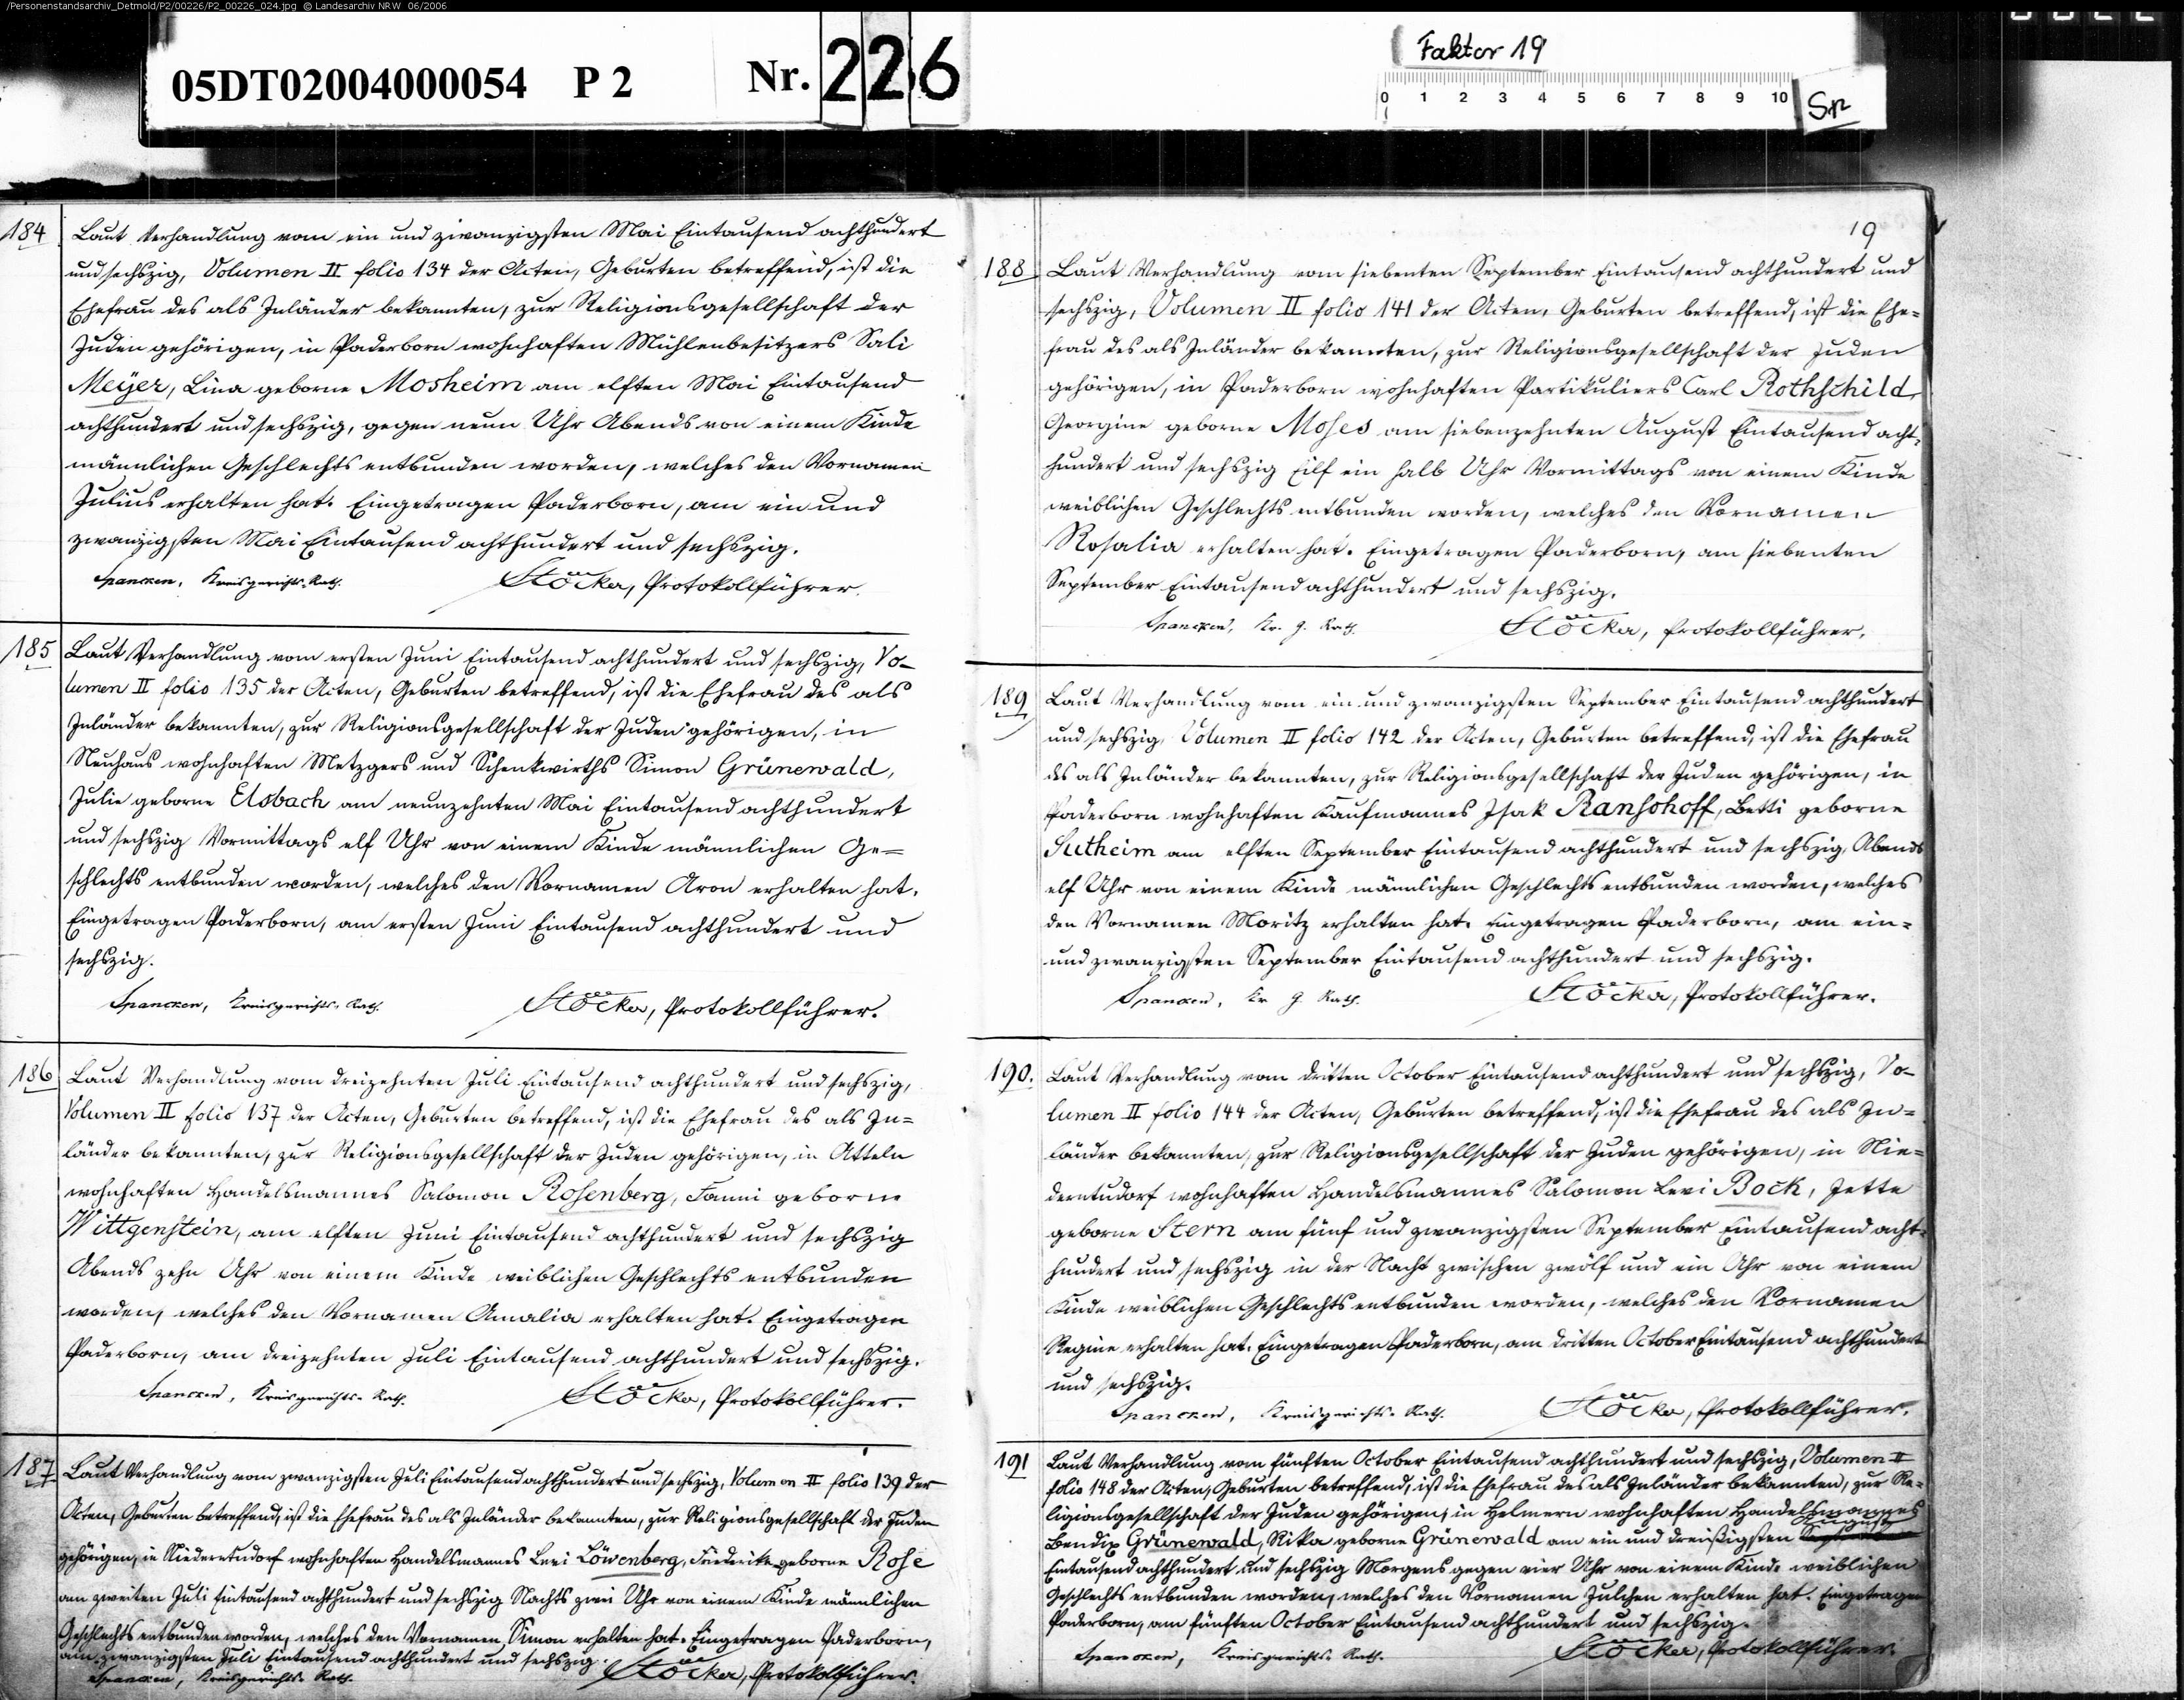 /Personenstandsarchiv_Detmold/P2/00226/P2_00226_024.jpg © Landesarchiv NRW 06/2006
05DT02004000054 P 2 Nr. 226
Faktor 19
0 1 2 3 4 5 6 7 8 9 10
Sp
184
Laut Verhandlung vom ein und zwanzigsten Mai Eintausend achthundert
und sechszig, Volumen II folio 134 der Acten, Geburten betreffend, ist die
Ehefrau des als Inländer bekannten, zur Religionsgesellschaft der
Juden gehörigen, in Paderborn wohnhaften Mühlenbesitzers Sali
Meyer, Lina geborne Mosheim am elften Mai Eintausend
achthundert und sechszig, gegen neun Uhr Abends von einem Kinde
männlichen Geschlechts entbunden worden, welches den Vornamen
Julius erhalten hat. Eingetragen Paderborn, am ein und
zwanzigsten Mai Eintausend achthundert und sechszig.
Spancken, Kreisgerichts-Rath. Stöcker, Protokollführer.
185
Laut Verhandlung vom ersten Juni Eintausend achthundert und sechszig, Vo-
lumen II folio 135 der Acten, Geburten betreffend, ist die Ehefrau des als
Inländer bekannten, zur Religionsgesellschaft der Juden gehörigen, in
Neuhaus wohnhaften Metzgers und Schenkwirths Simon Grünewald,
Julie geborne Elsbach am neunzehnten Mai Eintausend achthundert
und sechszig Vormittags elf Uhr von einem Kinde männlichen Ge=
schlechts entbunden worden, welches den Vornamen Aron erhalten hat.
Eingetragen Paderborn, am ersten Juni Eintausend achthundert und
sechszig.
Spancken, Kreisgerichts-Rath. Stöcker, Protokollführer.
186
Laut Verhandlung vom dreizehnten Juli Eintausend achthundert und sechszig,
Volumen II folio 137 der Acten, Geburten betreffend, ist die Ehefrau des als In=
länder bekannten, zur Religionsgesellschaft der Juden gehörigen, in Atteln
wohnhaften Handelsmannes Salomon Rosenberg, Fanni geborne
Wittgenstein, am elften Juni Eintausend achthundert und sechszig
Abends zehn Uhr von einem Kinde weiblichen Geschlechts entbunden
worden, welches den Vornamen Amalia erhalten hat. Eingetragen
Paderborn, am dreizehnten Juli Eintausend achthundert und sechszig.
Spancken, Kreisgerichts-Rath. Stöcker, Protokollführer.
187
Laut Verhandlung vom zwanzigsten Juli Eintausend achthundert und sechszig, Volumen II folio 139 der
Acten, Geburten betreffend, ist die Ehefrau des als Inländer bekannten, zur Religionsgesellschaft der Juden
gehörigen, in Niederntudorf wohnhaften Handelsmannes Levi Löwenberg, Friederike geborne Rose
am zweiten Juli Eintausend achthundert und sechszig Nachts zwei Uhr von einem Kinde männlichen
Geschlechts entbunden worden, welches den Vornamen Simon erhalten hat. Eingetragen Paderborn,
am zwanzigsten Juli Eintausend achthundert und sechszig.
Spancken, Kreisgerichts-Rath. Stöcker, Protokollführer.
19
188
Laut Verhandlung vom siebenten September Eintausend achthundert und
sechszig, Volumen II folio 141 der Acten, Geburten betreffend, ist die Ehe=
frau des als Inländer bekannten, zur Religionsgesellschaft der Juden
gehörigen, in Paderborn wohnhaften Partikuliers Carl Rothschild,
Georgine geborne Moses am siebenzehnten August Eintausend acht-
hundert und sechszig Eilf ein halb Uhr Vormittags von einem Kinde
weiblichen Geschlechts entbunden worden, welches den Vornamen
Rosalia erhalten hat. Eingetragen Paderborn, am siebenten
September Eintausend achthundert und sechszig.
Spancken, Kr. G. Rath. Stöcker, Protokollführer.
189
Laut Verhandlung vom ein und zwanzigsten September Eintausend achthundert
und sechszig, Volumen II folio 142 der Acten, Geburten betreffend, ist die Ehefrau
des als Inländer bekannten, zur Religionsgesellschaft der Juden gehörigen, in
Paderborn wohnhaften Kaufmannes Isak Ransohoff, Betti geborne
Sutheim am elften September Eintausend achthundert und sechszig, Abends
elf Uhr von einem Kinde männlichen Geschlechts entbunden worden, welches
den Vornamen Moritz erhalten hat. Eingetragen Paderborn, am ein=
und zwanzigsten September Eintausend achthundert und sechszig.
Spancken, Kr G. Rath. Stöcker, Protokollführer.
190.
Laut Verhandlung vom dritten October Eintausend achthundert und sechszig, Vo-
lumen II folio 144 der Acten, Geburten betreffend, ist die Ehefrau des als In=
länder bekannten, zur Religionsgesellschaft der Juden gehörigen, in Nie=
derntudorf wohnhaften Handelsmannes Salomon Levi Bock, Jette
geborne Stern am fünf und zwanzigsten September Eintausend acht-
hundert und sechszig in der Nacht zwischen zwölf und ein Uhr von einem
Kinde weiblichen Geschlechts entbunden worden, welches den Vornamen
Regine erhalten hat. Eingetragen Paderborn, am dritten October Eintausend achthundert
und sechszig.
Spancken, Kreisgerichts-Rath. Stöcker, Protokollführer.
191
Laut Verhandlung vom fünften October Eintausend achthundert und sechszig, Volumen II
folio 148 der Acten, Geburten betreffend, ist die Ehefrau des als Inländer bekannten, zur Re-
ligionsgesellschaft der Juden gehörigen, in Helmern wohnhaften Handelsmannes
Bendix Grünewald, Rika geborne Grünewald am ein und dreißigsten August
Eintausend achthundert und sechszig Morgens gegen vier Uhr von einem Kinde weiblichen
Geschlechts entbunden worden, welches den Vornamen Julchen erhalten hat. Eingetragen
Paderborn, am fünften October Eintausend achthundert und sechszig.
Spancken, Kreisgerichts-Rath. Stöcker, Protokollführer.